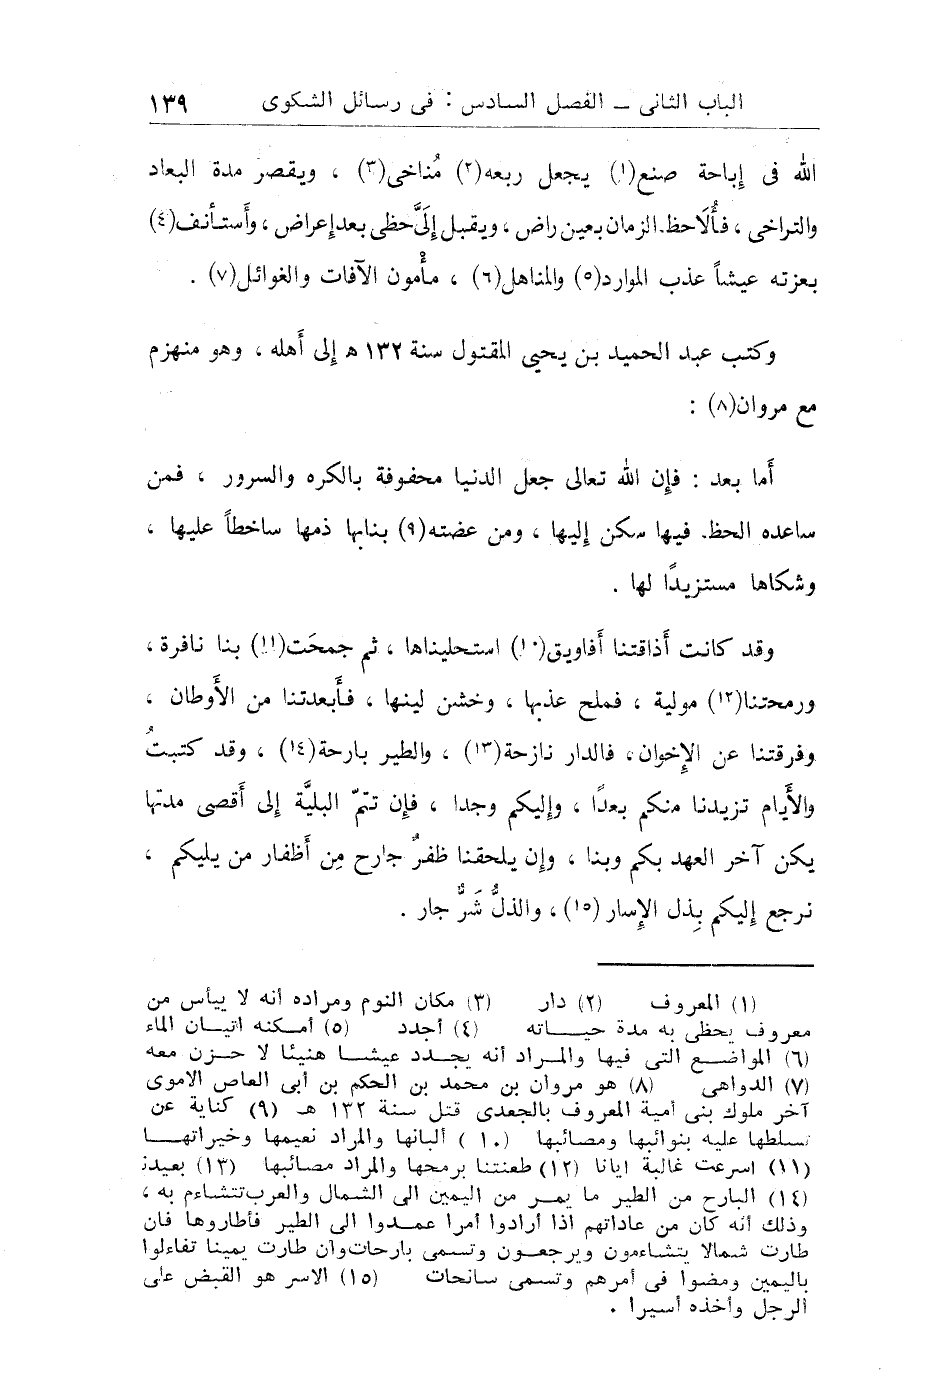 الباب الثانى ــ الفصل السادس : فى رسائل الشكوى ١٣٩
الله فى إباحة صنع(١) يجعل ربعه(٢) مُناخى(٣) ، ويقصر مدة البعاد
والتراخى ، فأُلَاحظ الزمان بعين راض ، ويقبل إلَىَّ حظى بعد إعراض ، وأَستأنف(٤)
بعزته عيشاً عذب الموارد(٥) والمناهل(٦) ، مأْمون الآفات والغوائل(٧) .
وكتب عبد الحميد بن يحيى المقتول سنة ١٣٢ ه إلى أَهله ، وهو منهزم
مع مروان(٨) :
أَما بعد : فإِن الله تعالى جعل الدنيا محفوفة بالكره والسرور ، فمن
ساعده الحظ فيها سكن إليها ، ومن عضته(٩) بنابها ذمها ساخطاً عليها ،
وشكاها مستزيدًا لها .
وقد كانت أَذاقتنا أَفاويق(١٠) استحليناها ، ثم جمحَت(١١) بنا نافرة ،
ورمحتنا(١٢) مولية ، فملح عذبها ، وخشن لينها ، فأَبعدتنا من الأَوطان ،
وفرقتنا عن الإِخوان ، فالدار نازحة(١٣) ، والطير بارحة(١٤) ، وقد كتبتُ
والأَيام تزيدنا منكم بعدًا ، وإليكم وجدا ، فإن تتمّ البليَّة إلى أَقصى مدتها
يكن آخر العهد بكم وبنا ، وإن يلحقنا ظفرٌ جارح مِن أَظفار من يليكم ،
نرجع إليكم بِذل الإِسار (١٥) ، والذلُّ شَرٌّ جار .
(١) المعروف (٢) دار (٣) مكان النوم ومراده أنه لا ييأس من
معروف يحظى به مدة حيـــاته (٤) أجدد (٥) أمـكنه اتيـان الماء
(٦) المواضــع التى فيها والمـراد أنه يجـدد عيشـا هنيئا لا حـزن معه
(٧) الدواهى (٨) هو مروان بن محمد بن الحكم بن أبى العاص الاموى
آخر ملوك بنى أمية المعروف بالجعدى قتل سنة ١٣٢ هـ (٩) كناية عن
تسلطها عليه بنوائبها ومصائبها (١٠) ألبانها والمراد نعيمها وخيراتهــا
(١١) اسرعت غالبة ايانا (١٢) طعنتنا برمحها والمراد مصائبها (١٣) بعيدة
(١٤) البارح من الطير ما يمـر من اليمين الى الشمال والعرب تتشاءم به ،
وذلك أنه كان من عاداتهم اذا أرادوا أمرا عمـدوا الى الطير فأطاروها فان
طارت شمالا يتشاءمون ويرجعـون وتسمى بارحات وان طارت يمينا تفاءلوا
باليمين ومضوا فى أمرهم وتسمى سانحات (١٥) الاسر هو القبض على
الرجل وأخذه أسيرا .